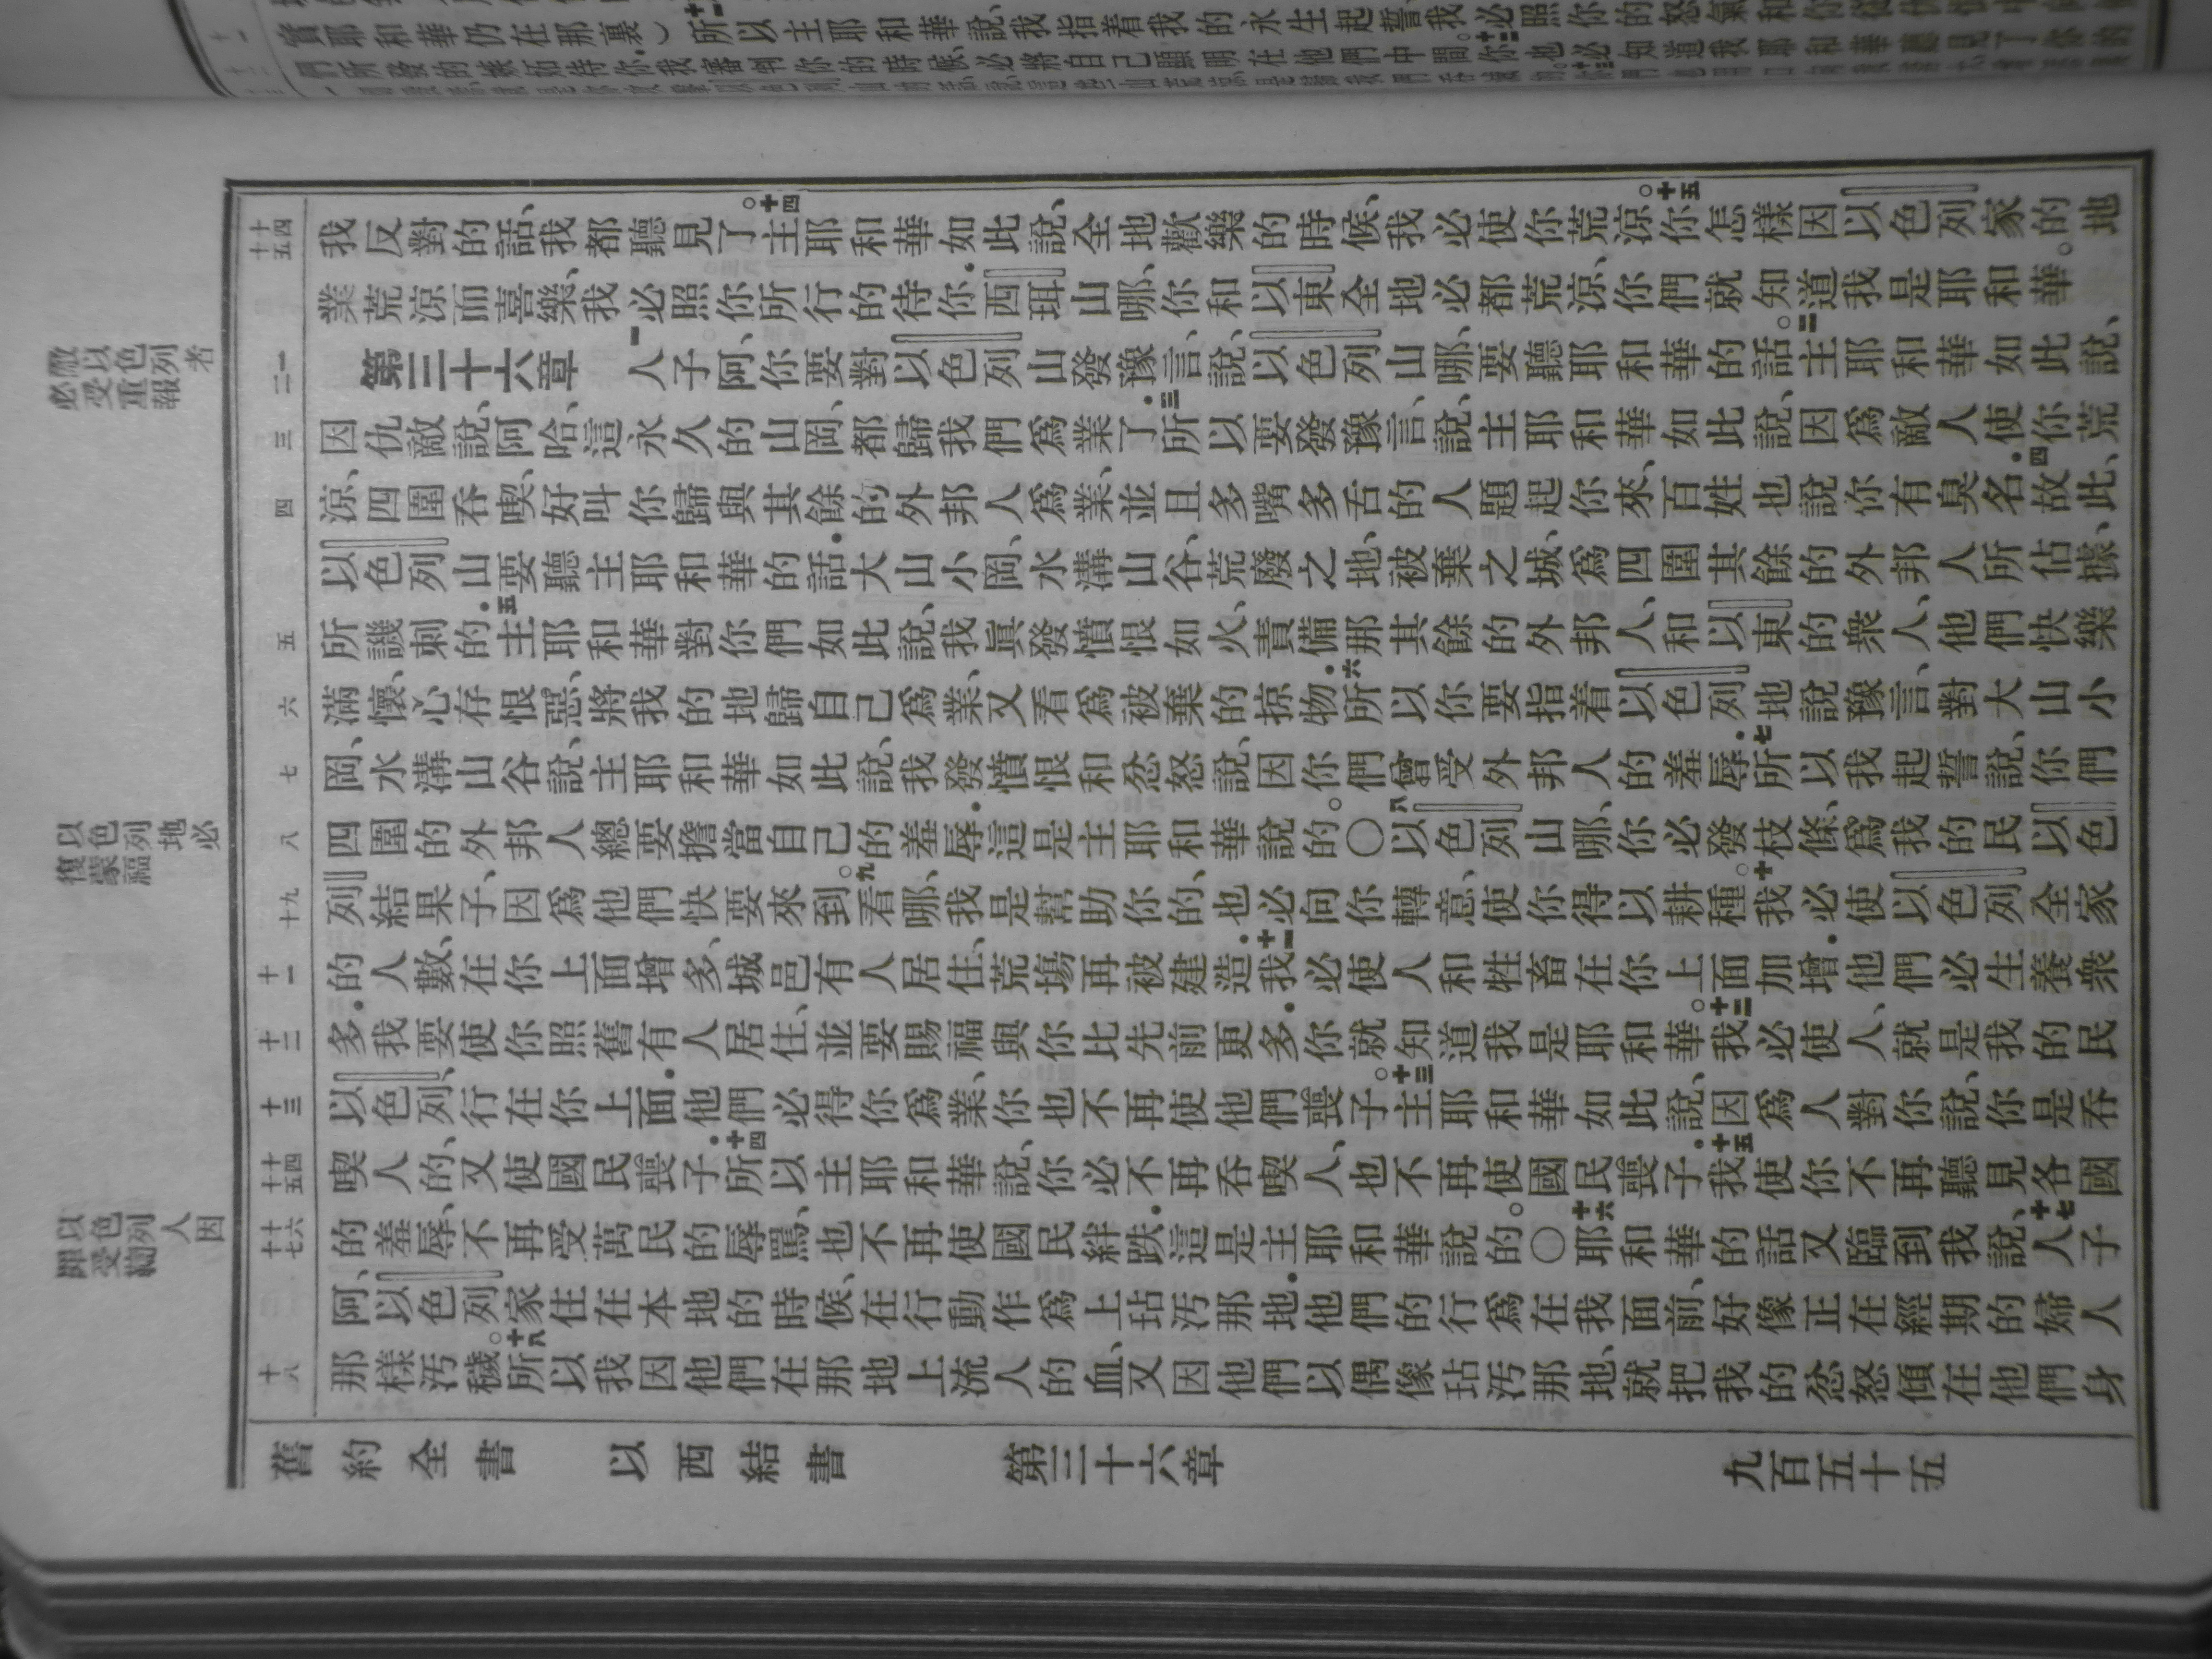 實耶和華仍在那裏)十一所以主耶和華說、我指着我的永生起誓、我必照你的怒氣和你
們所發的嫉妒待你、我審判你的時候、必將自己顯明在他們中間。十二你也必知道我耶和華聽見了你的
我反對的話、我都聽見了。十四主耶和華如此說、全地歡樂的時候、我必使你荒涼。十五你怎樣因以色列家的地
業荒涼而喜樂、我必照你所行的待你．西珥山哪、你和以東全地必都荒涼、你們就知道我是耶和華。
第三十六章　一人子阿、你要對以色列山發豫言、說、以色列山哪、要聽耶和華的話。二主耶和華如此說、
因仇敵說、阿哈、這永久的山岡、都歸我們爲業了．三所以要發豫言、說、主耶和華如此說、因爲敵人使你荒
涼、四圍吞喫、好叫你歸與其餘的外邦人爲業、並且多嘴多舌的人題起你來、百姓也說你有臭名．四故此、
以色列山要聽主耶和華的話．大山小岡、水溝山谷、荒廢之地、被棄之城、爲四圍其餘的外邦人所佔據、
所譏刺的．五主耶和華對你們如此說、我眞發憤恨如火、責備那其餘的外邦人、和以東的衆人、他們快樂
滿懷、心存恨惡、將我的地歸自己爲業、又看爲被棄的掠物．六所以你要指着以色列地說豫言、對大山小
岡、水溝山谷說、主耶和華如此說、我發憤恨和忿怒說、因你們曾受外邦人的羞辱．七所以我起誓說、你們
四圍的外邦人總要擔當自己的羞辱．這是主耶和華說的。〇八以色列山哪、你必發枝條、爲我的民以色
列結果子、因爲他們快要來到。九看哪、我是幫助你的、也必向你轉意、使你得以耕種。十我必使以色列全家
的人數、在你上面增多、城邑有人居住、荒塲再被建造．十一我必使人和牲畜在你上面加增．他們必生養衆
多．我要使你照舊有人居住、並要賜福與你比先前更多．你就知道我是耶和華。十二我必使人、就是我的民
以色列、行在你上面．他們必得你爲業、你也不再使他們喪子。十三主耶和華如此說、因爲人對你說、你是吞
喫人的、又使國民喪子．十四所以主耶和華說、你必不再吞喫人、也不再使國民喪子．十五我使你不再聽見各國
的羞辱、不再受萬民的辱罵、也不再使國民絆跌．這是主耶和華說的。〇十六耶和華的話又臨到我說、十七人子
阿、以色列家住在本地的時候、在行動作爲上玷污那地．他們的行爲在我面前、好像正在經期的婦人
那樣汚穢。十八所以我因他們在那地上流人的血、又因他們以偶像玷污那地、就把我的忿怒傾在他們身
十四
十五
一
二
三
四
五
六
七
八
九
十
十一
十二
十三
十四
十五
十六
十七
十八
敵以色列者
必受重報
以色列地必
復蒙福
以色列人因
罪受懲
舊約全書　以西結書　第三十六章　九百五十五